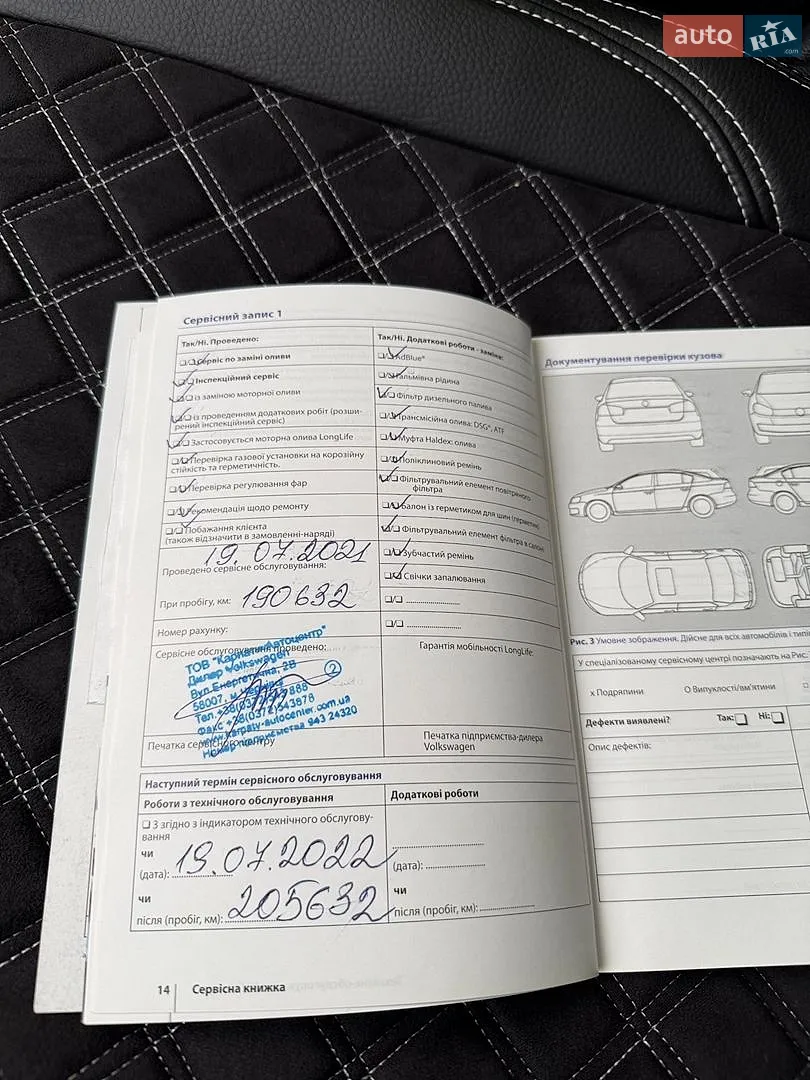 auto RIA .com
Сервісний запис 1
Так/Ні. Проведено:
Сервіс по заміні оливи
Інспекційний сервіс
із заміною моторної оливи
із проведенням додаткових робіт (розши-
рений інспекційний сервіс)
Застосовується моторна олива LongLife
Перевірка газової установки на корозійну
стійкість та герметичність.
Перевірка регулювання фар
Рекомендація щодо ремонту
Побажання клієнта
(також відзначити в замовленні-наряді)
19.07.2021
Проведено сервісне обслуговування:
При пробігу, км: 190632
Номер рахунку:
Сервісне обслуговування проведено:
ТОВ "Карпати-Автоцентр"
Дилер Volkswagen
Вул. Енергетична, 2В
58007, м.
Тел. +38(037 888
Факс +38(0372)543878
www.karpaty-autocenter.com.ua
Номер підприємства 943 24320
2
Печатка сервісного центру
Так/Ні. Додаткові роботи - заміна:
AdBlue®
Гальмівна рідина
Фільтр дизельного палива
Трансмісійна олива: DSG®, ATF
Муфта Haldex: олива
Поліклиновий ремінь
Фільтрувальний елемент повітряного
фільтра
Балон із герметиком для шин (герметик)
Фільтрувальний елемент фільтра в салоні
Зубчастий ремінь
Свічки запалювання
Гарантія мобільності LongLife:
Печатка підприємства-дилера
Volkswagen
Наступний термін сервісного обслуговування
Роботи з технічного обслуговування
З згідно з індикатором технічного обслугову-
вання
чи
(дата): 19.07.2022
чи
після (пробіг, км): 205632
Додаткові роботи
(дата):
чи
після (пробіг, км):
14 Сервісна книжка
Документування перевірки кузова
Рис. 3 Умовне зображення. Дійсне для всіх автомобілів і типів
У спеціалізованому сервісному центрі позначають на Рис.
x Подряпини O Випуклості/вм'ятини
Дефекти виявлені? Так: Ні:
Опис дефектів: